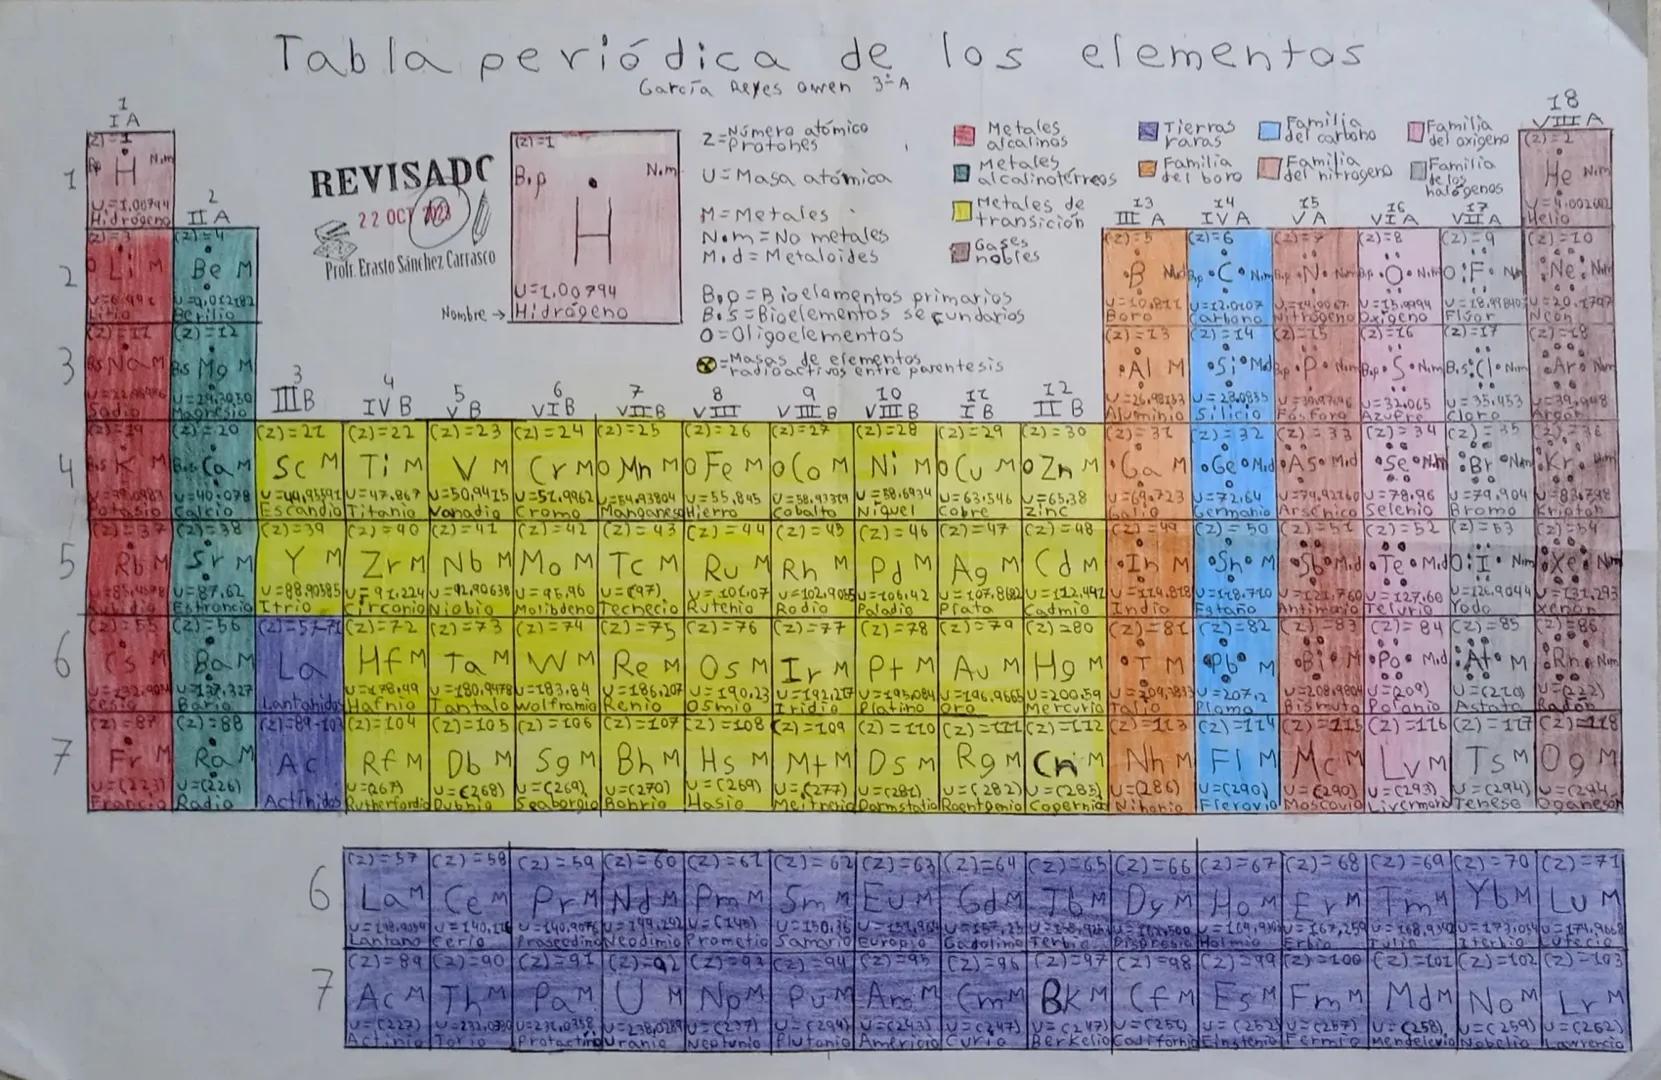 Tabla periódica de los elementos
García Reyes Owen 3-A
1
IA
18
VIII A
REVISADO
22 OCT 2023
Profr. Erasto Sánchez Carrasco
Nombre →
(z)=1
B.p N.m
H
U=1,00794
Hidrógeno
Z=Número atómico
Protones
U=Masa atómica
M=Metales
N.m=No metales
M.d=Metaloides
B.p=Bioelementos primarios
B.s=Bioelementos secundarios
O=Oligoelementos
=Masas de elementos
radioactivos entre parentesis
Metales
alcalinos
Metales
alcalinotérreos
Metales de
transición
Gases
nobles
Tierras
raras
Familia
del boro
Familia
del carbono
Familia
del nitrógeno
Familia
del oxígeno
Familia
de los
halógenos
2
II A
3
III B
4
IV B
5
V B
6
VI B
7
VII B
8
VIII
9
VIII B
10
VIII B
11
I B
12
II B
13
III A
14
IV A
15
V A
16
VI A
17
VII A
1
(z)=1
H N.m
U=1,00794
Hidrógeno
(z)=2
He N.m
Helio
2
(z)=3 (z)=4 (z)=5 (z)=6 (z)=7 (z)=8 (z)=9 (z)=10
Li M Be M B C N O F Ne
Litio Berilio Boro Carbono Nitrógeno Oxígeno Flúor Neón
3
(z)=11 (z)=12 (z)=13 (z)=14 (z)=15 (z)=16 (z)=17 (z)=18
Na M Mg M Al M Si P S Cl Ar
Sodio Magnesio Aluminio Silicio Fósforo Azufre Cloro Argón
4
(z)=19 (z)=20 (z)=21 (z)=22 (z)=23 (z)=24 (z)=25 (z)=26 (z)=27 (z)=28 (z)=29 (z)=30 (z)=31 (z)=32 (z)=33 (z)=34 (z)=35 (z)=36
K M Ca M Sc M Ti M V M Cr M O Mn M O Fe M O Co M Ni M O Cu M O Zn M Ga M Ge As Se Br Kr
U=40,078 U=44,95591 U=47,867 U=50,9415 U=51,9962 U=54,93804 U=55,845 U=58,6934 U=63,546 U=65,38 U=69,723 U=72,64 U=74,92160 U=78,96 U=79,904 U=83,798
Potasio Calcio Escandio Titanio Vanadio Cromo Manganeso Hierro Cobalto Níquel Cobre Zinc Galio Germanio Arsénico Selenio Bromo Kriptón
5
(z)=37 (z)=38 (z)=39 (z)=40 (z)=41 (z)=42 (z)=43 (z)=44 (z)=45 (z)=46 (z)=47 (z)=48 (z)=49 (z)=50 (z)=51 (z)=52 (z)=53 (z)=54
Rb M Sr M Y M Zr M Nb M Mo M Tc M Ru M Rh M Pd M Ag M Cd M In M Sn M Sb M.d Te M.d O I N.m Xe N.m
U=87,62 U=88,90585 U=91,224 U=92,90638 U=95,96 U=(97) U=101,07 U=106,42 U=107,8682 U=112,441 U=114,818 U=118,710 U=121,760 U=127,60 U=126,9044 U=131,293
Rubidio Estroncio Itrio Circonio Niobio Molibdeno Tecnecio Rutenio Rodio Paladio Plata Cadmio Indio Estaño Antimonio Telurio Yodo Xenón
6
(z)=55 (z)=56 (z)=57-71 (z)=72 (z)=73 (z)=74 (z)=75 (z)=76 (z)=77 (z)=78 (z)=79 (z)=80 (z)=81 (z)=82 (z)=83 (z)=84 (z)=85 (z)=86
Cs M Ba M La Hf M Ta M W M Re M Os M Ir M Pt M Au M Hg M T M Pb M Bi M Po M.d At M Rn N.m
U=137,327 U=178,49 U=180,9478 U=183,84 U=186,207 U=190,23 U=192,217 U=195,084 U=196,9665 U=200,59 U=207,2 U=208,9804 U=(209) U=(210) U=(222)
Cesio Bario Lantanidos Hafnio Tantalo Wolframio Renio Osmio Iridio Platino Oro Mercurio Talio Plomo Bismuto Polonio Astato Radón
7
(z)=87 (z)=88 (z)=89-103 (z)=104 (z)=105 (z)=106 (z)=107 (z)=108 (z)=109 (z)=110 (z)=111 (z)=112 (z)=113 (z)=114 (z)=115 (z)=116 (z)=117 (z)=118
Fr M Ra M Ac Rf M Db M Sg M Bh M Hs M Mt M Ds M Rg M Cn M Nh M Fl M Mc M Lv M Ts M Og M
U=(223) U=(226) U=(267) U=(268) U=(269) U=(270) U=(269) U=(277) U=(281) U=(282) U=(285) U=(286) U=(290) U=(290) U=(293) U=(294) U=(294)
Francio Radio Actinidos Rutherfordio Dubnio Seaborgio Bohrio Hasio Meitnerio Darmstatio Roentgenio Copernio Nihonio Flerovio Moscovio Livermorio Teneso Oganesón
6
(z)=57 (z)=58 (z)=59 (z)=60 (z)=61 (z)=62 (z)=63 (z)=64 (z)=65 (z)=66 (z)=67 (z)=68 (z)=69 (z)=70 (z)=71
La M Ce M Pr M Nd M Pm M Sm M Eu M Gd M Tb M Dy M Ho M Er M Tm M Yb M Lu M
Lantano Cerio Praseodimio Neodimio Prometio Samario Europio Gadolinio Terbio Disprosio Holmio Erbio Tulio Iterbio Lutecio
7
(z)=89 (z)=90 (z)=91 (z)=92 (z)=93 (z)=94 (z)=95 (z)=96 (z)=97 (z)=98 (z)=99 (z)=100 (z)=101 (z)=102 (z)=103
Ac M Th M Pa M U M Np M Pu M Am M Cm M BK M Cf M Es M Fm M Md M No M Lr M
U=(227) U=(237) U=(243) U=(247) U=(247) U=(251) U=(252) U=(257) U=(258) U=(259) U=(262)
Actinio Torio Protactinio Uranio Neptunio Plutonio Américio Curio Berkelio Californio Einstenio Fermio Mendelevio Nobelio Lawrencio